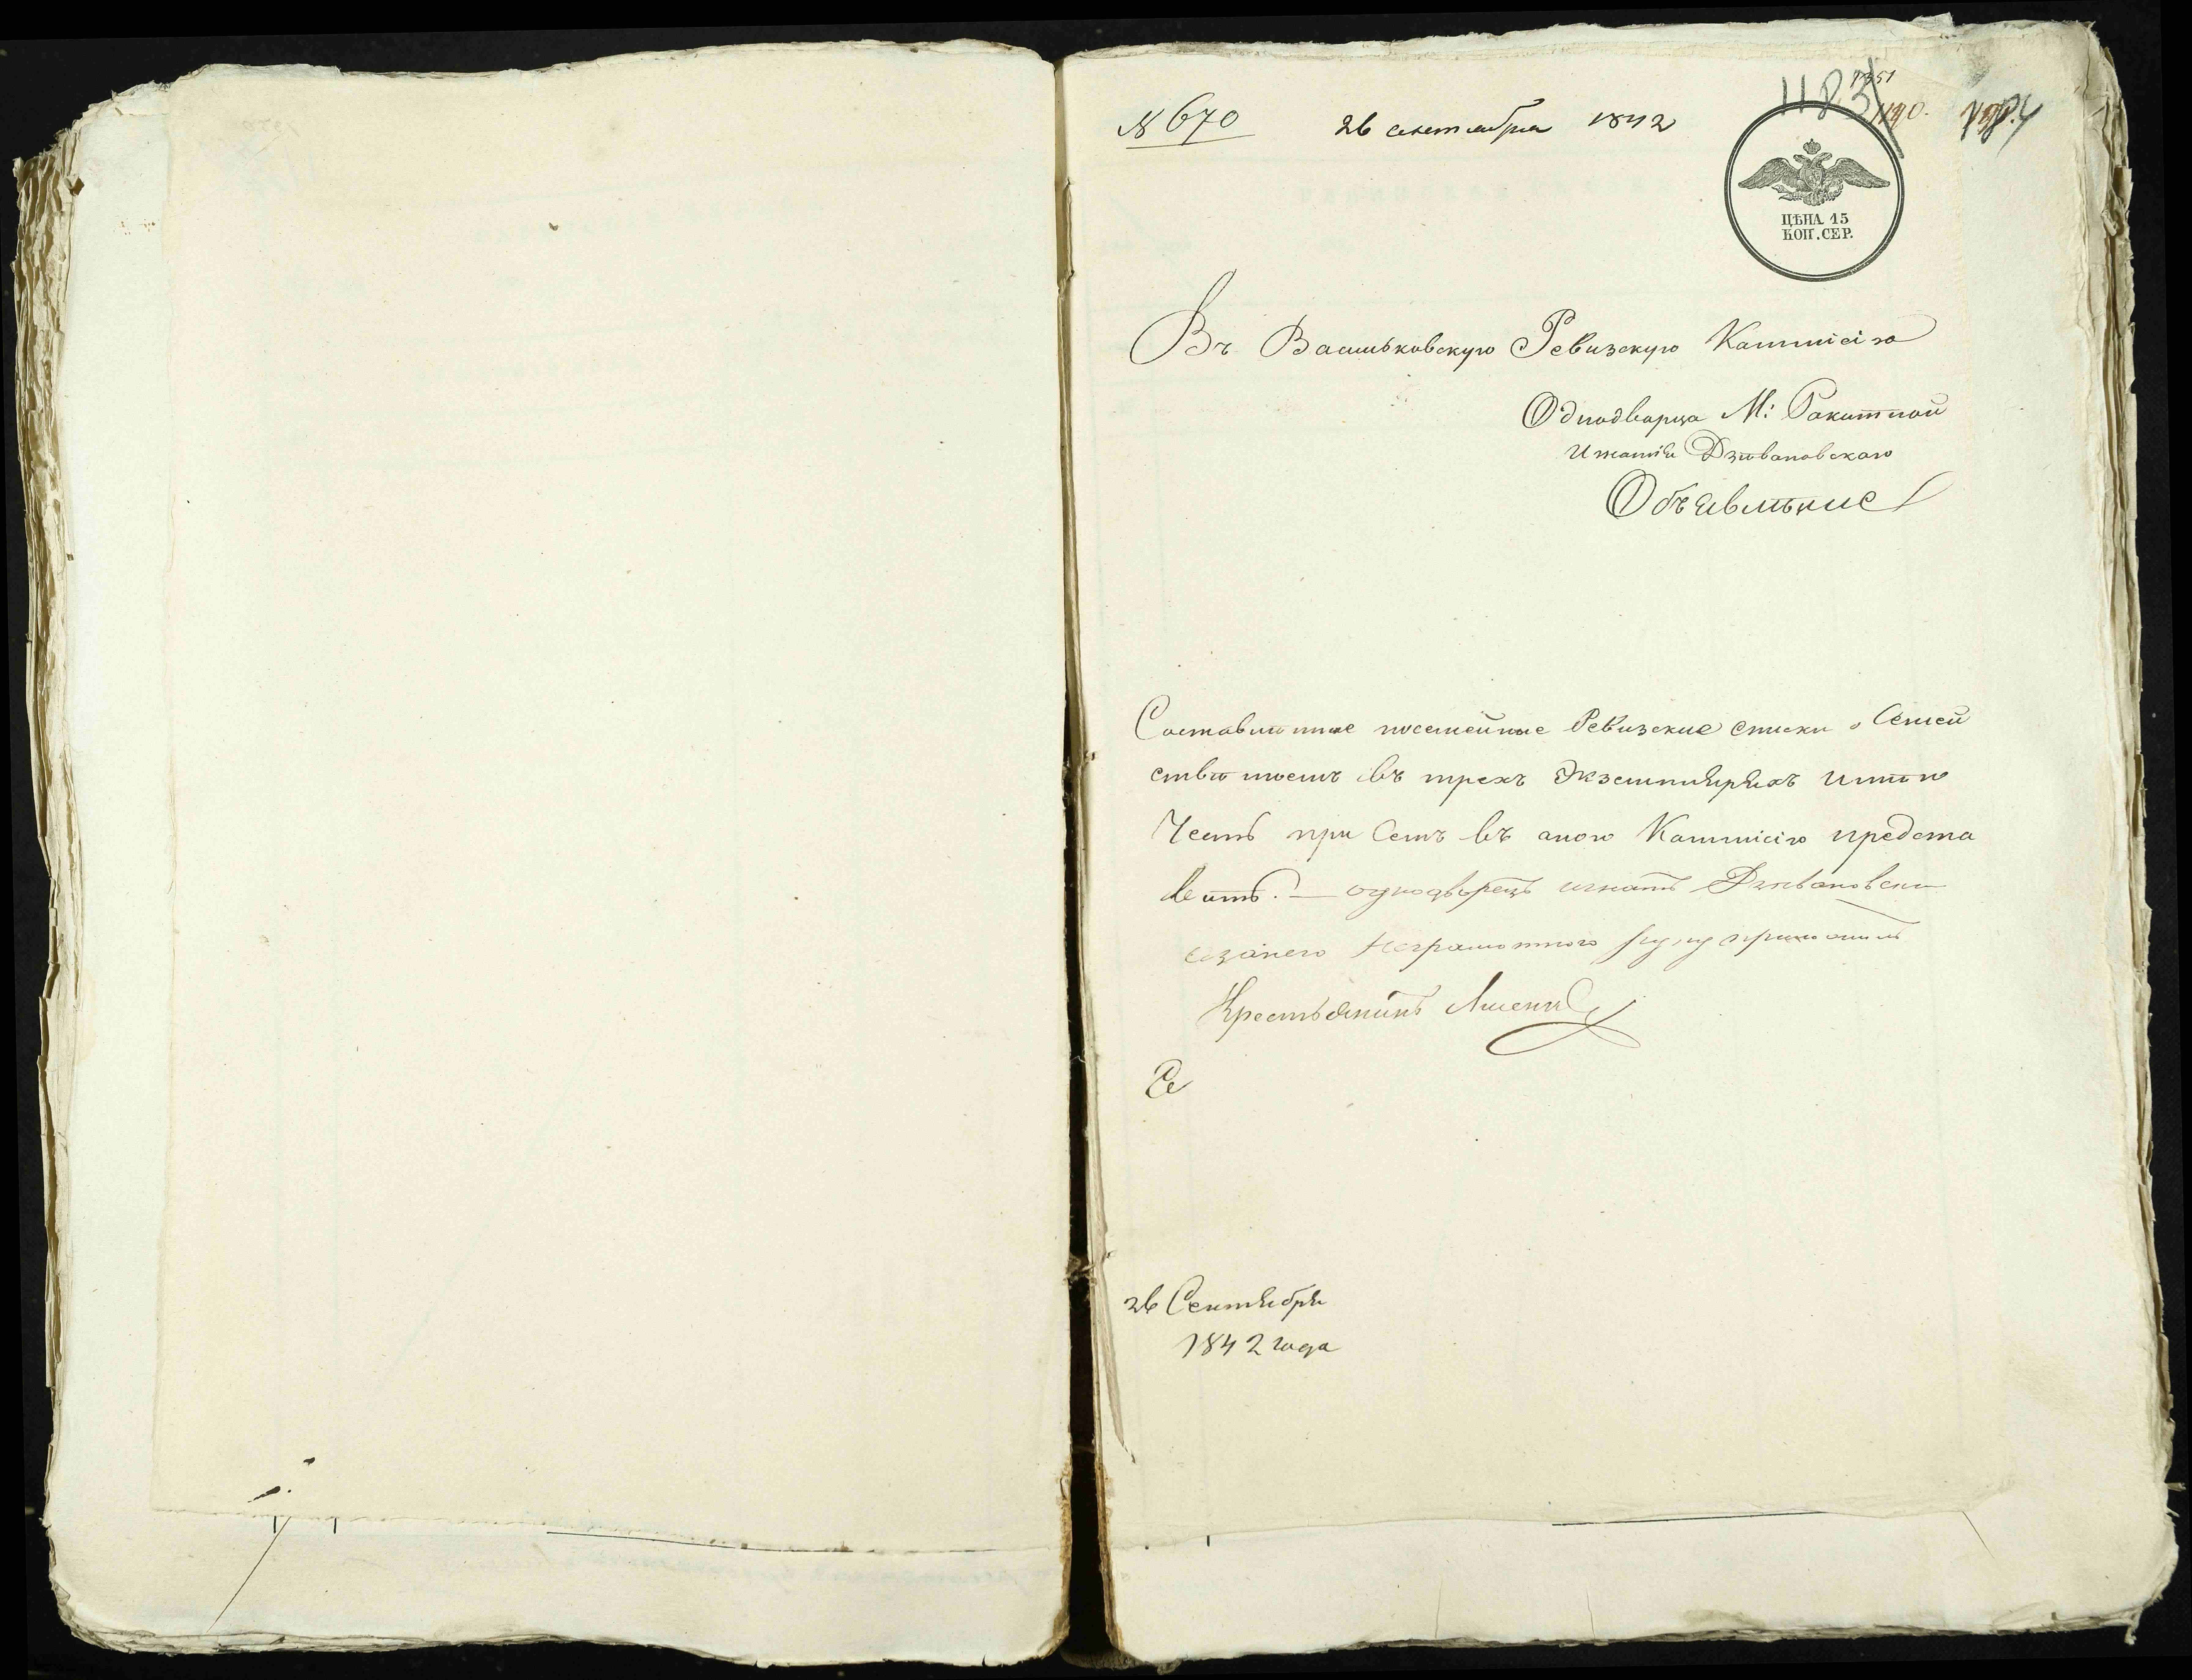 № 670 26 сентября 1842
1351
1183 1190. 1184
ЦѢНА 15
КОП. СЕР.
Въ Васильковскую Ревизскую Коммисію
Однодворца М: Ракитной
Игнатія Дзивановскаго
Объявленіе
Составленные посемейные Ревизские списки о Семей
стве моемъ въ трехъ Экземплярахъ имею
Честь при Семъ въ оною Коммисію предста
вить. — однодворецъ игнатъ Дзивановски
азанего Неграмотного руку приложилъ
Крестьянинъ
Се
26 Сентября
1842 года